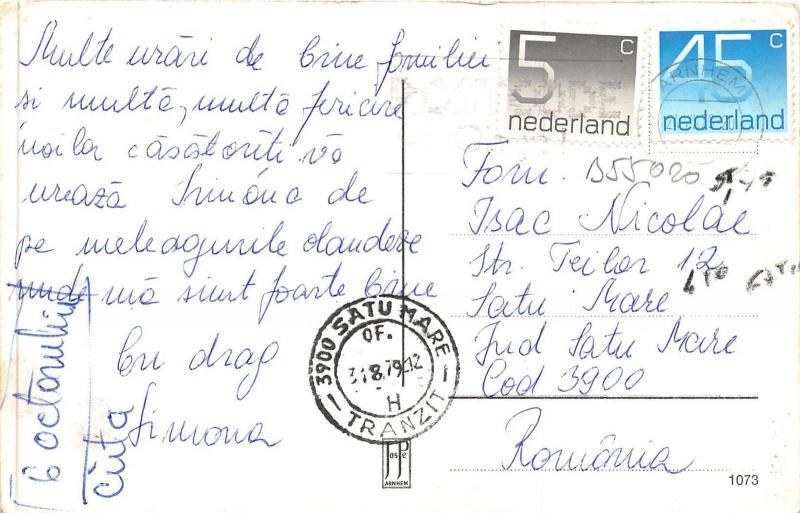 Multe urări de bine familiei
si multă, multă fericire
noilor căsătoriti vă
urează Simona de
pe meleagurile olandeze
unde mă simt foarte bine
Cu drag
Simona
6 octombrie
nunta
5 c
nederland
45 c
nederland
ARNHEM
Fam. 355020
Isac Nicolae
Str. Teilor 12
Satu Mare
Jud Satu Mare
Cod 3900
România
3900 SATU MARE
OF.
31.8.79.12
H
TRANZIT
ARNHEM
1073